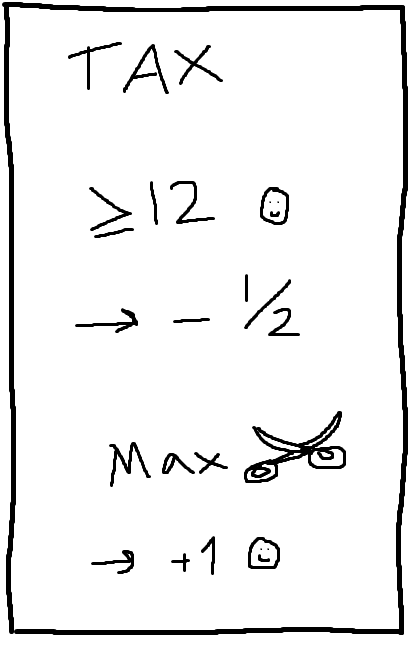 TAX
≥12
→ - 1/2
Max
→ +1